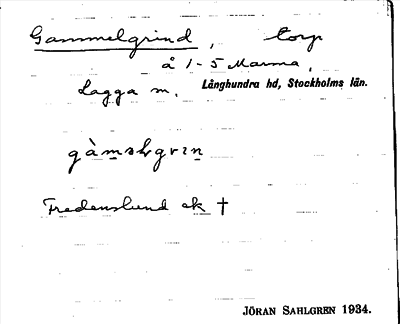 Gammelgrind, torp
å 1-5 Marma,
Lagga sn. Långhundra hd, Stockholms län.
gàmǝlgrın
Fredenslund ek †
JÖRAN SAHLGREN 1934.